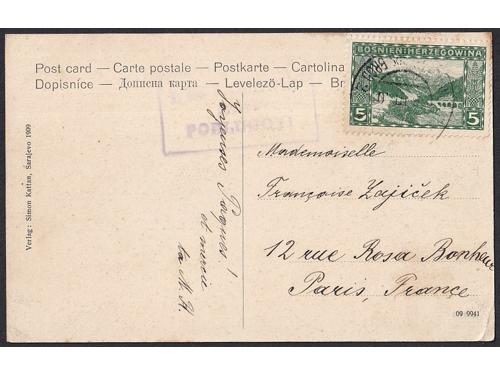 Post card — Carte postale — Postkarte — Cartolina
Dopisnice — Дописна карта — Levelező-Lap — Br
BOSNIEN·HERZEGOWINA
5 5
Joyeuses Pâques !
et merci
ta M. A.
Mademoiselle
Françoise Zajiček
12 rue Rosa Bonheur
Paris, France
Verlag: Simon Kattan, Sarajevo 1909
09 9941